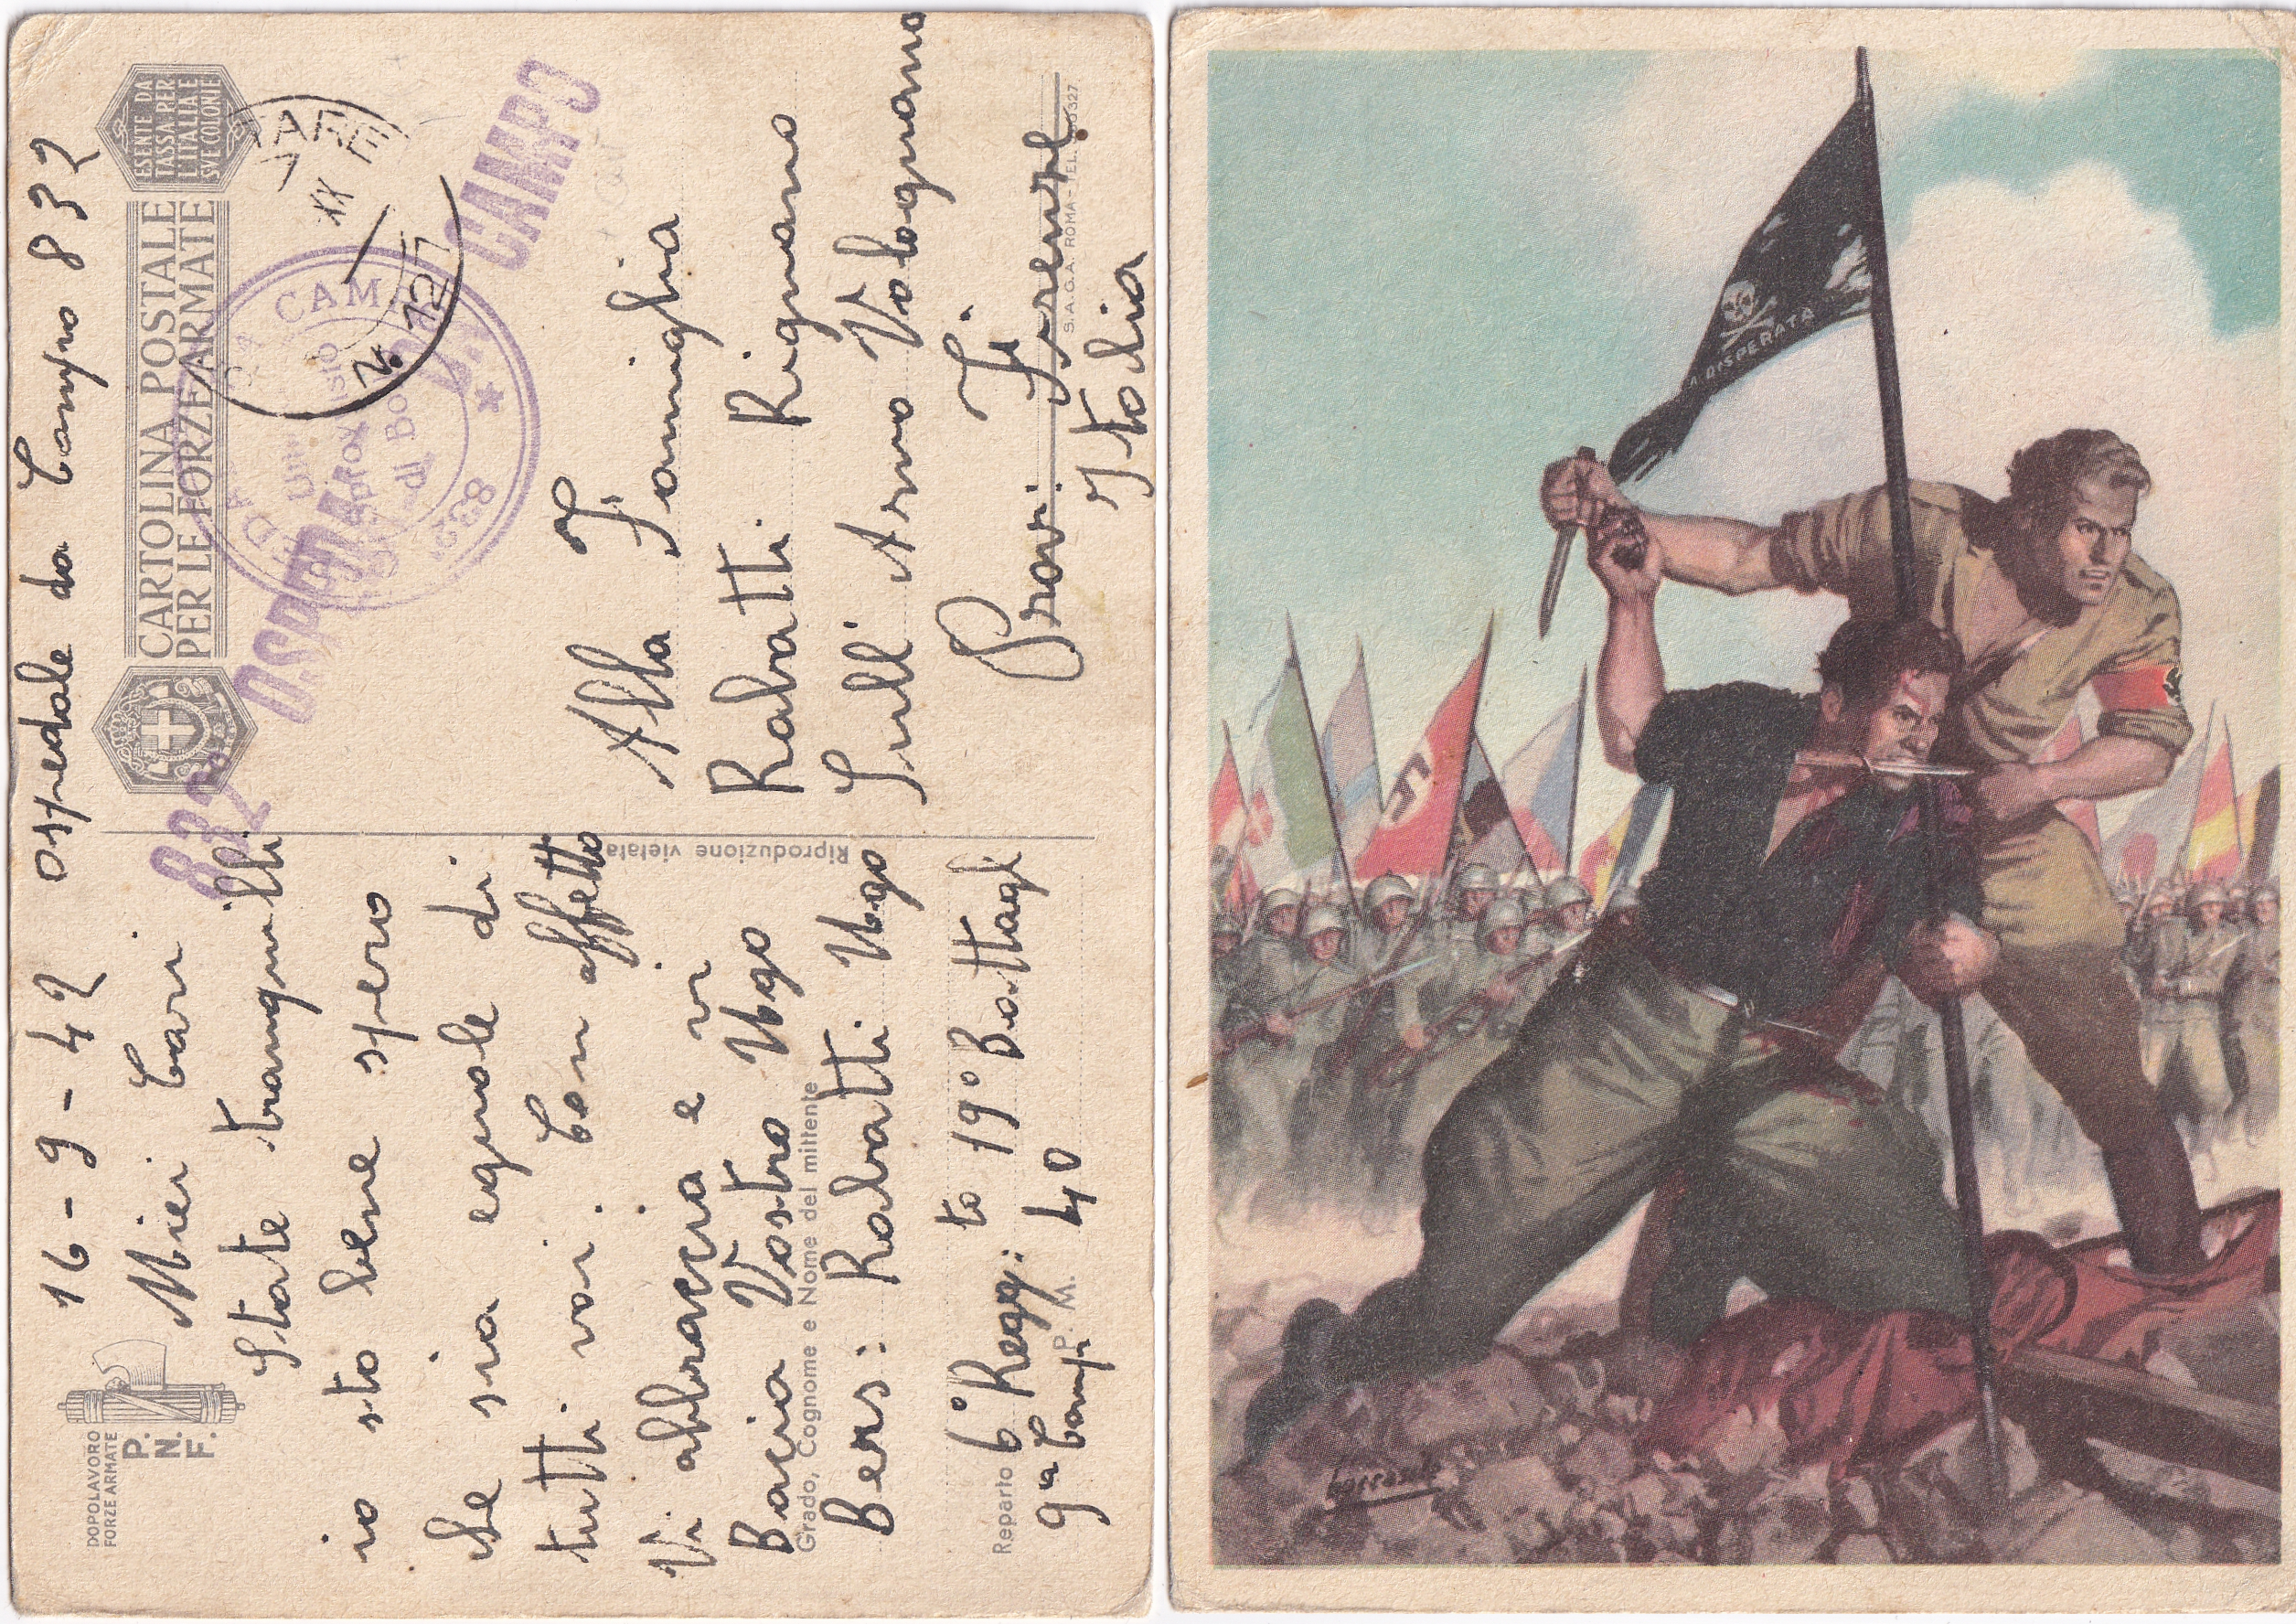 DOPOLAVORO
FORZE ARMATE
P.
N.
F.
16-9-42 ospedale da Campo 832
Miei Cari
State tranquilli
io sto bene spero
che sia eguale di
tutti voi. Con affetto
Vi abbraccia e vi
Bacia Vostro Ugo
Grado, Cognome e Nome del mittente
Bers: Rabatti Ugo
Reparto 6° Regg: to 19° Battagl:
9ª Comp P. M. 40
Riproduzione vietata
CARTOLINA POSTALE
PER LE FORZE ARMATE
ESENTE DA
TASSA PER
L'ITALIA E
SVE COLONIE
832 OSPEDALE DA CAMPO
CAM
832
XX
N. 127
Alla Famiglia
Rabatti Rignano
Sull' Arno Volognano
Provi. Firenze
Fi.
Italia
S. A. G. A. ROMA - TEL.
LA DISPERATA
Boccasile